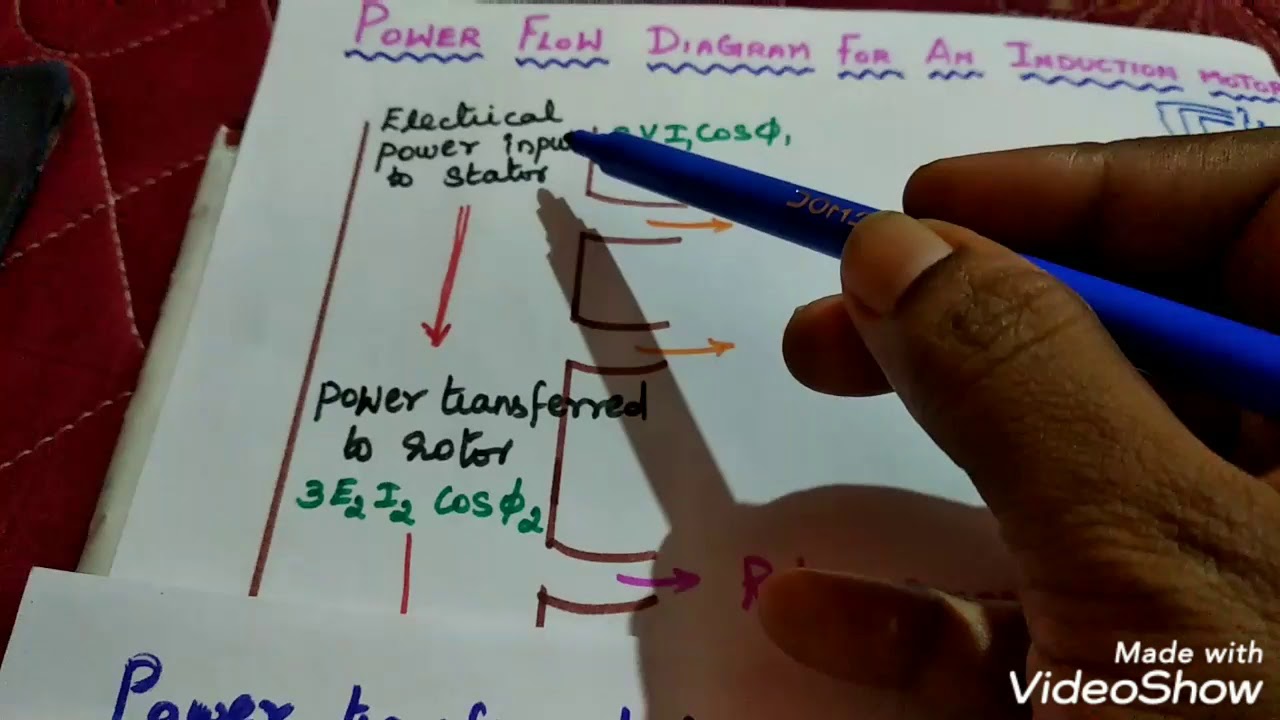 POWER FLOW DIAGRAM FOR AN INDUCTION MOTOR
Electrical
power input
to stator
VI₁ cosϕ₁
power transferred
to rotor
3E₂I₂ cosϕ₂
Power
Made with
VideoShow